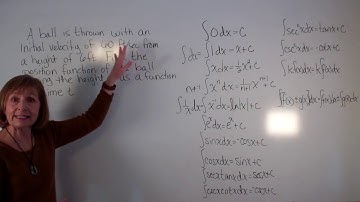 A ball is thrown with an
initial velocity of 60 ft/sec from
a height of 6 ft. Find the
position function of the ball
the height as a function
time t.
∫0dx=C
∫dx= ∫1dx=x+C
∫xdx=½x²+C
n≠-1 ∫xⁿdx=xⁿ⁺¹/n+1+C
∫1/x dx= ∫x⁻¹dx=ln|x|+C
∫eˣdx=eˣ+C
∫sinxdx=-cosx+C
∫cosxdx=sinx+C
∫secxtanxdx=secx+C
∫cscxcotxdx=-cscx+C
∫sec²xdx=tanx+C
∫csc²xdx=-cotx+C
∫kf(x)dx=k∫f(x)dx